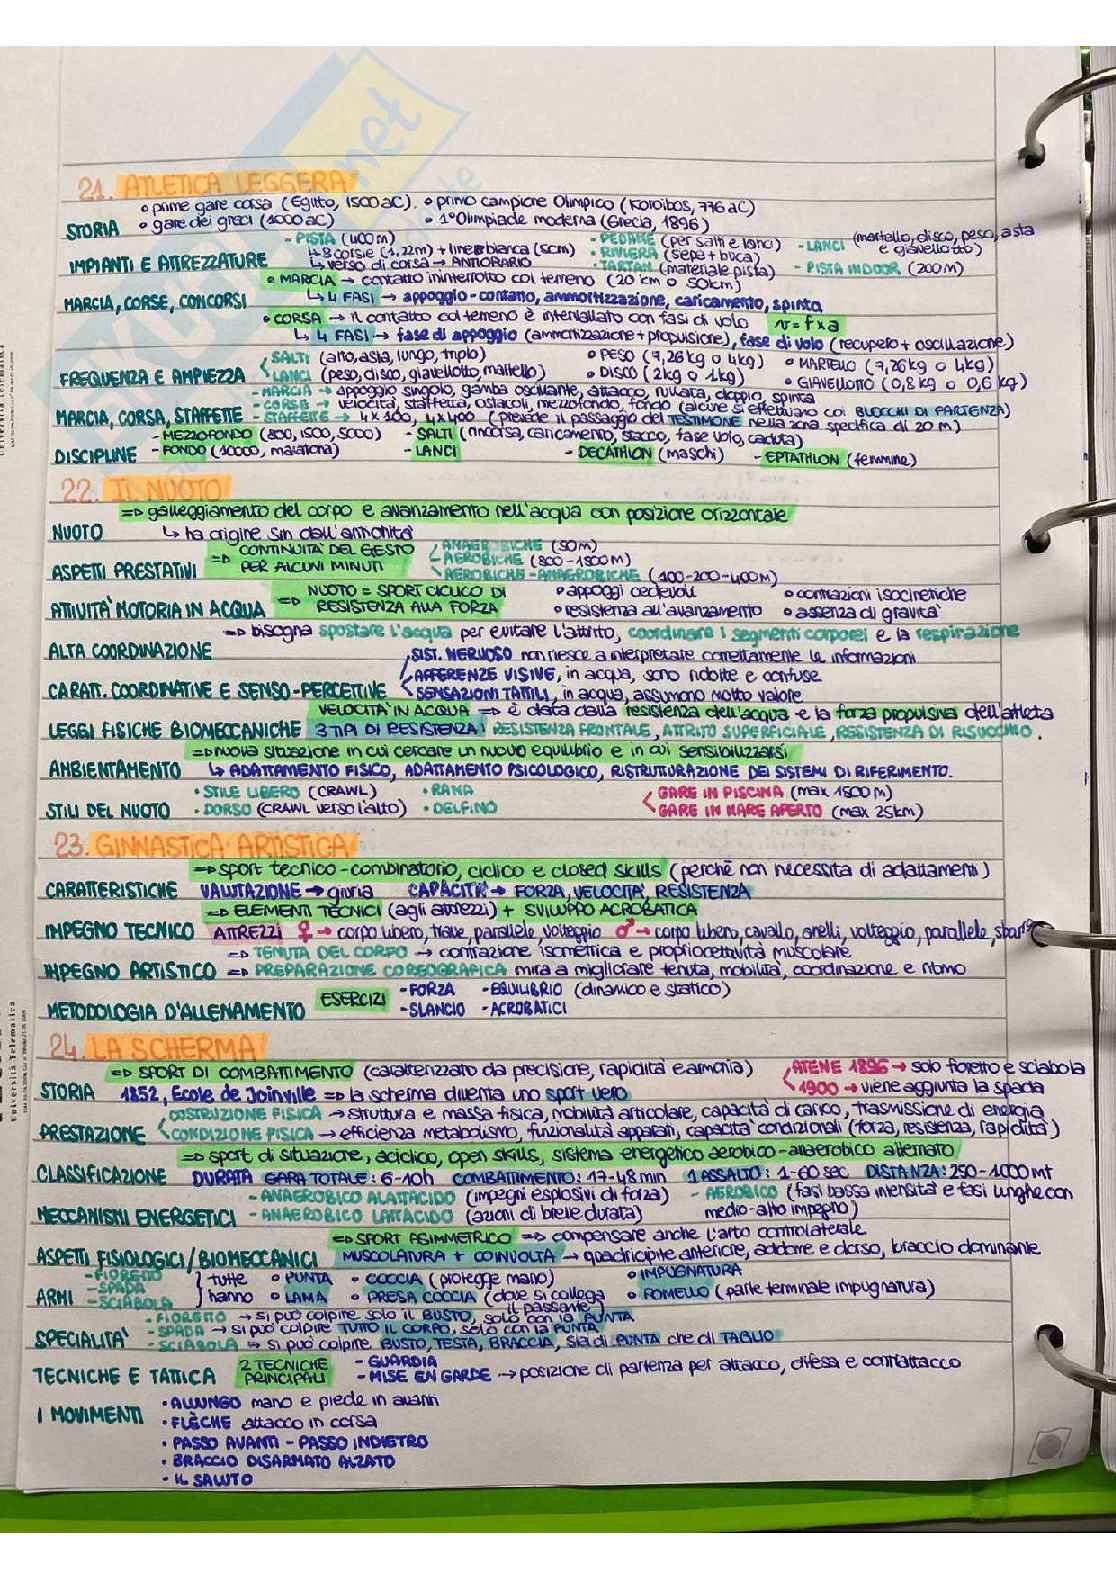 21. ATLETICA LEGGERA
• prime gare corsa (Egitto, 1500 aC). • primo campione Olimpico (Koroibos, 776 aC)
STORIA • gare dei greci (1000 aC) • 1° Olimpiade moderna (Grecia, 1896)
- PISTA (400 m) - PEDANE (per salti e lanci) - LANCI (martello, disco, peso, asta e giavellotto)
↳ 8 corsie (1,22m) + linea bianca (5cm) - RIVIERA (sepe + buca)
IMPIANTI E ATTREZZATURE ↳ verso di corsa → ANTIORARIO - TARTAN (materiale pista) - PISTA INDOOR (200 m)
• MARCIA → contatto ininterrotto col terreno (20 km o 50km)
MARCIA, CORSE, CONCORSI ↳ 4 FASI → appoggio-contatto, ammortizzazione, caricamento, spinta
• CORSA → il contatto col terreno è intervallato con fasi di volo v = f x a
↳ 4 FASI → fase di appoggio (ammortizzazione + propulsione), fase di volo (recupero + oscillazione)
SALTI (alto, asta, lungo, triplo) • PESO (7,26 kg o 4kg) • MARTELLO (7,26kg o 4kg)
FREQUENZA E AMPIEZZA LANCI (peso, disco, giavellotto, martello) • DISCO (2kg o 1kg) • GIAVELLOTTO (0,8 kg o 0,6 kg)
- MARCIA → appoggio singolo, gamba oscillante, attacco, rullata, doppio, spinta
- CORSE → velocità, staffetta, ostacoli, mezzofondo, fondo (alcune si effettuano coi BLOCCHI DI PARTENZA)
MARCIA, CORSA, STAFFETTE - STAFFETTE → 4x100, 4x400 (prevede il passaggio del TESTIMONE nella zona specifica di 20 m)
- MEZZOFONDO (800, 1500, 5000) - SALTI (rincorsa, caricamento, stacco, fase volo, caduta)
DISCIPLINE - FONDO (10000, maratona) - LANCI - DECATHLON (maschi) - EPTATHLON (femmine)
22. IL NUOTO
=> galleggiamento del corpo e avanzamento nell'acqua con posizione orizzontale
NUOTO ↳ ha origine sin dall'antichità
=> CONTINUITA' DEL GESTO PER ALCUNI MINUTI - ANAEROBICHE (50 m)
- AEROBICHE (800-1500 M)
ASPETTI PRESTATIVI - AEROBICHE-ANAEROBICHE (100-200-400 M)
=> NUOTO = SPORT CICLICO DI • appoggi cedevoli • contrazioni isocinetiche
ATTIVITA' MOTORIA IN ACQUA RESISTENZA ALLA FORZA • resistenza all'avanzamento • assenza di gravità
=> bisogna spostare l'acqua per evitare l'attrito, coordinare i segmenti corporei e la respirazione
ALTA COORDINAZIONE SIST. NERVOSO non riesce a interpretare correttamente le informazioni
AFFERENZE VISIVE, in acqua, sono ridotte e confuse
CARATT. COORDINATIVE E SENSO-PERCETTIVE SENSAZIONI TATTILI, in acqua, assumono molto valore
VELOCITA' IN ACQUA => è data dalla resistenza dell'acqua e la forza propulsiva dell'atleta
LEGGI FISICHE BIOMECCANICHE 3 TIPI DI RESISTENZA: RESISTENZA FRONTALE, ATTRITO SUPERFICIALE, RESISTENZA DI RISUCCHIO.
=> nuova situazione in cui cercare un nuovo equilibrio e in cui sensibilizzarsi
AMBIENTAMENTO ↳ ADATTAMENTO FISICO, ADATTAMENTO PSICOLOGICO, RISTRUTTURAZIONE DEI SISTEMI DI RIFERIMENTO.
• STILE LIBERO (CRAWL) • RANA GARE IN PISCINA (max 1500 M)
STILI DEL NUOTO • DORSO (CRAWL verso l'alto) • DELFINO GARE IN MARE APERTO (max 25km)
23. GINNASTICA ARTISTICA
=> sport tecnico-combinatorio, ciclico e closed skills (perchè non necessita di adattamenti)
CARATTERISTICHE VALUTAZIONE → giuria CAPACITA' → FORZA, VELOCITA', RESISTENZA
=> ELEMENTI TECNICI (agli attrezzi) + SVILUPPO ACROBATICA
IMPEGNO TECNICO ATTREZZI ♀ → corpo libero, trave, parallele, volteggio ♂ → corpo libero, cavallo, anelli, volteggio, parallele, sbarra
=> TENUTA DEL CORPO → contrazione isometrica e propriocettività muscolare
IMPEGNO ARTISTICO => PREPARAZIONE COREOGRAFICA mira a migliorare tenuta, mobilità, coordinazione e ritmo
ESERCIZI - FORZA - EQUILIBRIO (dinamico e statico)
METODOLOGIA D'ALLENAMENTO - SLANCIO - ACROBATICI
24. LA SCHERMA
=> SPORT DI COMBATTIMENTO (caratterizzato da precisione, rapidità e armonia) ATENE 1896 → solo fioretto e sciabola
STORIA 1852, Ecole de Joinville => la scherma diventa uno sport vero 1900 → viene aggiunta la spada
COSTRUZIONE FISICA → struttura e massa fisica, mobilità articolare, capacità di carico, trasmissione di energia
PRESTAZIONE CONDIZIONE FISICA → efficienza metabolismo, funzionalità apparati, capacità condizionali (forza, resistenza, rapidità)
=> sport di situazione, aciclico, open skills, sistema energetico aerobico-anaerobico alternato
CLASSIFICAZIONE DURATA GARA TOTALE: 6-10h COMBATTIMENTO: 17-48 min 1 ASSALTO: 1-60 sec DISTANZA: 250-1000 mt
- ANAEROBICO ALATTACIDO (impegni esplosivi di forza) - AEROBICO (fasi bassa intensità e fasi lunghe con
MECCANISMI ENERGETICI - ANAEROBICO LATTACIDO (azioni di breve durata) medio-alto impegno)
=> SPORT ASIMMETRICO => compensare anche l'arto controlaterale
ASPETTI FISIOLOGICI/BIOMECCANICI MUSCOLATURA + COINVOLTA → quadricipite anteriore, addome e dorso, braccio dominante
- FIORETTO tutte • PUNTA - COCCIA (protegge mano) • IMPUGNATURA
- SPADA
ARMI - SCIABOLA hanno • LAMA - PRESA COCCIA (dove si collega il passante) • POMELLO (parte terminale impugnatura)
• FIORETTO → si può colpire solo il BUSTO, solo con la PUNTA
- SPADA → si può colpire TUTTO IL CORPO, solo con la PUNTA
SPECIALITA' - SCIABOLA → si può colpire BUSTO, TESTA, BRACCIA, sia di PUNTA che di TAGLIO
2 TECNICHE PRINCIPALI - GUARDIA
TECNICHE E TATTICA - MISE EN GARDE → posizione di partenza per attacco, difesa e contrattacco
I MOVIMENTI • ALLUNGO mano e piede in avanti
• FLÈCHE attacco in corsa
• PASSO AVANTI - PASSO INDIETRO
• BRACCIO DISARMATO ALZATO
• IL SALUTO